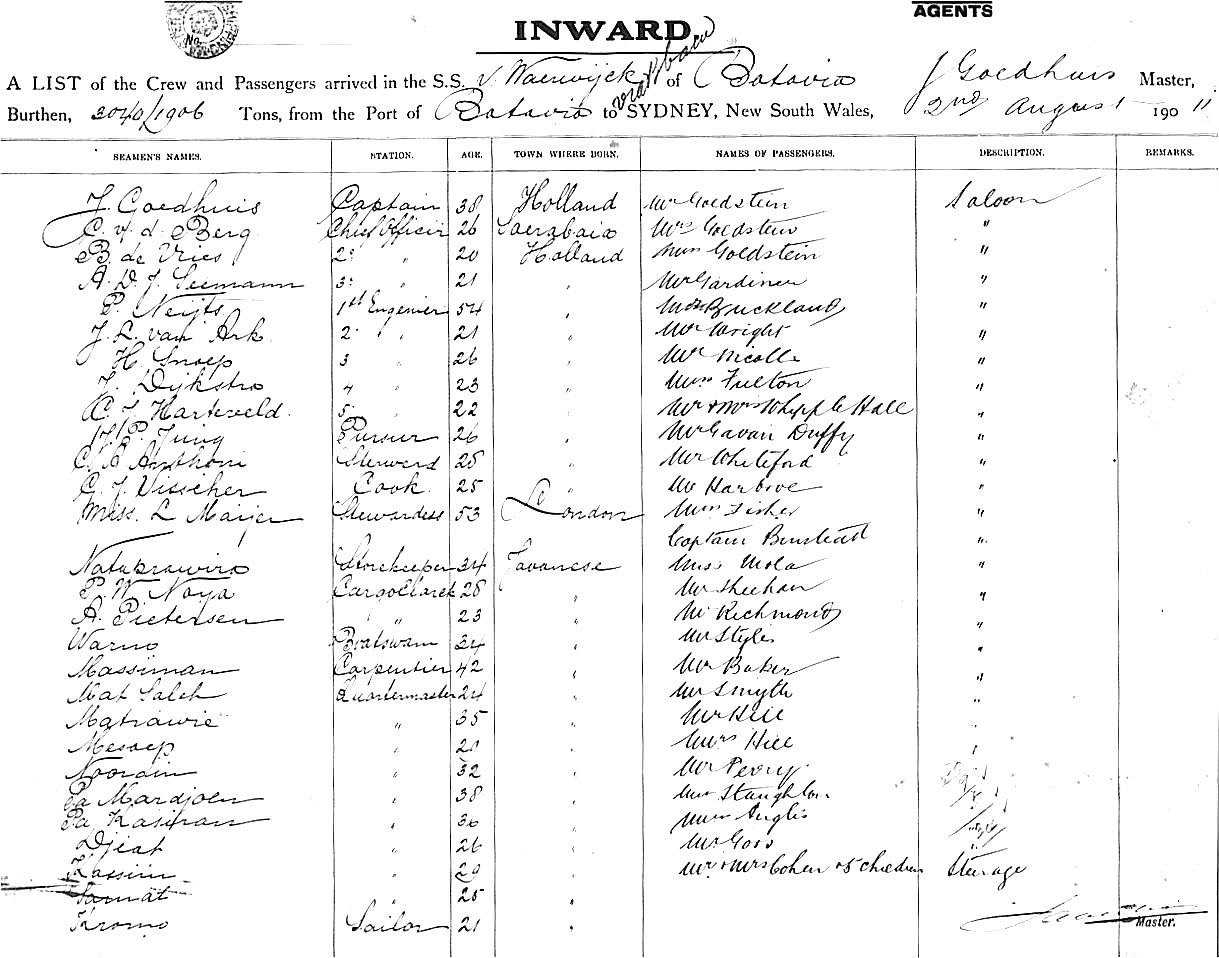 AGENTS
INWARD
A LIST of the Crew and Passengers arrived in the S.S. v. Waerwijck of Batavia J Goedhuis Master,
Burthen, 3040/1906 Tons, from the Port of Batavia to SYDNEY, New South Wales, 2nd August 1911
SEAMEN'S NAMES. STATION. AGE. TOWN WHERE BORN. NAMES OF PASSENGERS. DESCRIPTION. REMARKS.
J. Goedhuis Captain 38 Holland Mr Goldstein Saloon
C. v. d. Berg Chief Officir 26 Soerabaia Mrs Goldstein "
B. de Vries 2e " 20 Holland Miss Goldstein "
A. D. J. Seemann 3e " 21 " Mr Gardiner "
P. Neijts 1st Engenier 54 " Buckland "
J. L. van Ark 2e " 21 " Mr Wright "
H. Snoep 3 " 26 " Mr Nicolle "
J. Dijkstra 4 " 23 " Miss Fulton "
C. J. Harteveld. 5e " 22 " Mr & Mrs Whipple Hall "
H. P. Jung Pursur 26 " Mr Gavan Duffy "
C. A. Anthoni Sterwerd 28 " Mr Whiteford "
G. J. Visscher Cook. 25 " Mr "
Miss. L Maijer Stewardess 53 London Miss Fisher "
Captain Binstead "
Natuprawiro Storekeeper 34 Javanese Miss Mola "
P. W. Noya Cargo Clarck 28 " Mr Sheehan "
A. Pietersen " 23 " Mr Richmond "
Warno Boatswain 34 " Mr Styles "
Massiman Carpentier 42 " Mr Baker "
Mat Saleh Quartermaster 24 " Mr Smyth "
Matrawie " 35 " Mr Hill "
Mesoep " 21 " Mrs Hill "
Noordin " 32 " Mr Perry
Pa Mardjoen " 38 " Miss Staughton
Pa Kasiman " 36 " Miss Inglis
Djiat " 26 " Mr Goss "
Kassim " 20 " Mr & Mrs Cohen & 5 children Steerage
Samat " 25 "
Kromo Sailor 21 "
Master.